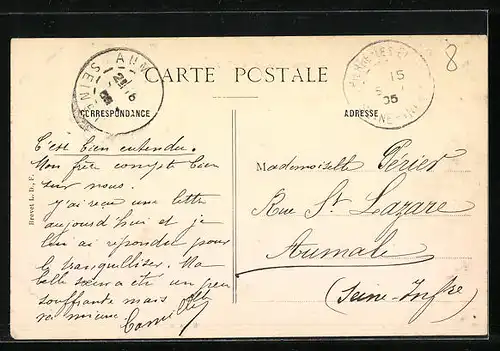 CARTE POSTALE
CORRESPONDANCE
ADRESSE
8
AUM
SEINE
15
05
C'est bien entendu.
Mon frère compte bien
sur nous.
J'ai reçu une lettre
aujourd'hui et je
lui ai répondu pour
la tranquilliser. Ma
belle sœur a été un peu
souffrante mais elle
va mieux. Camille
Mademoiselle Périer
Rue St Lazare
Aumale
(Seine-Infre)
Brevet L. D., P.